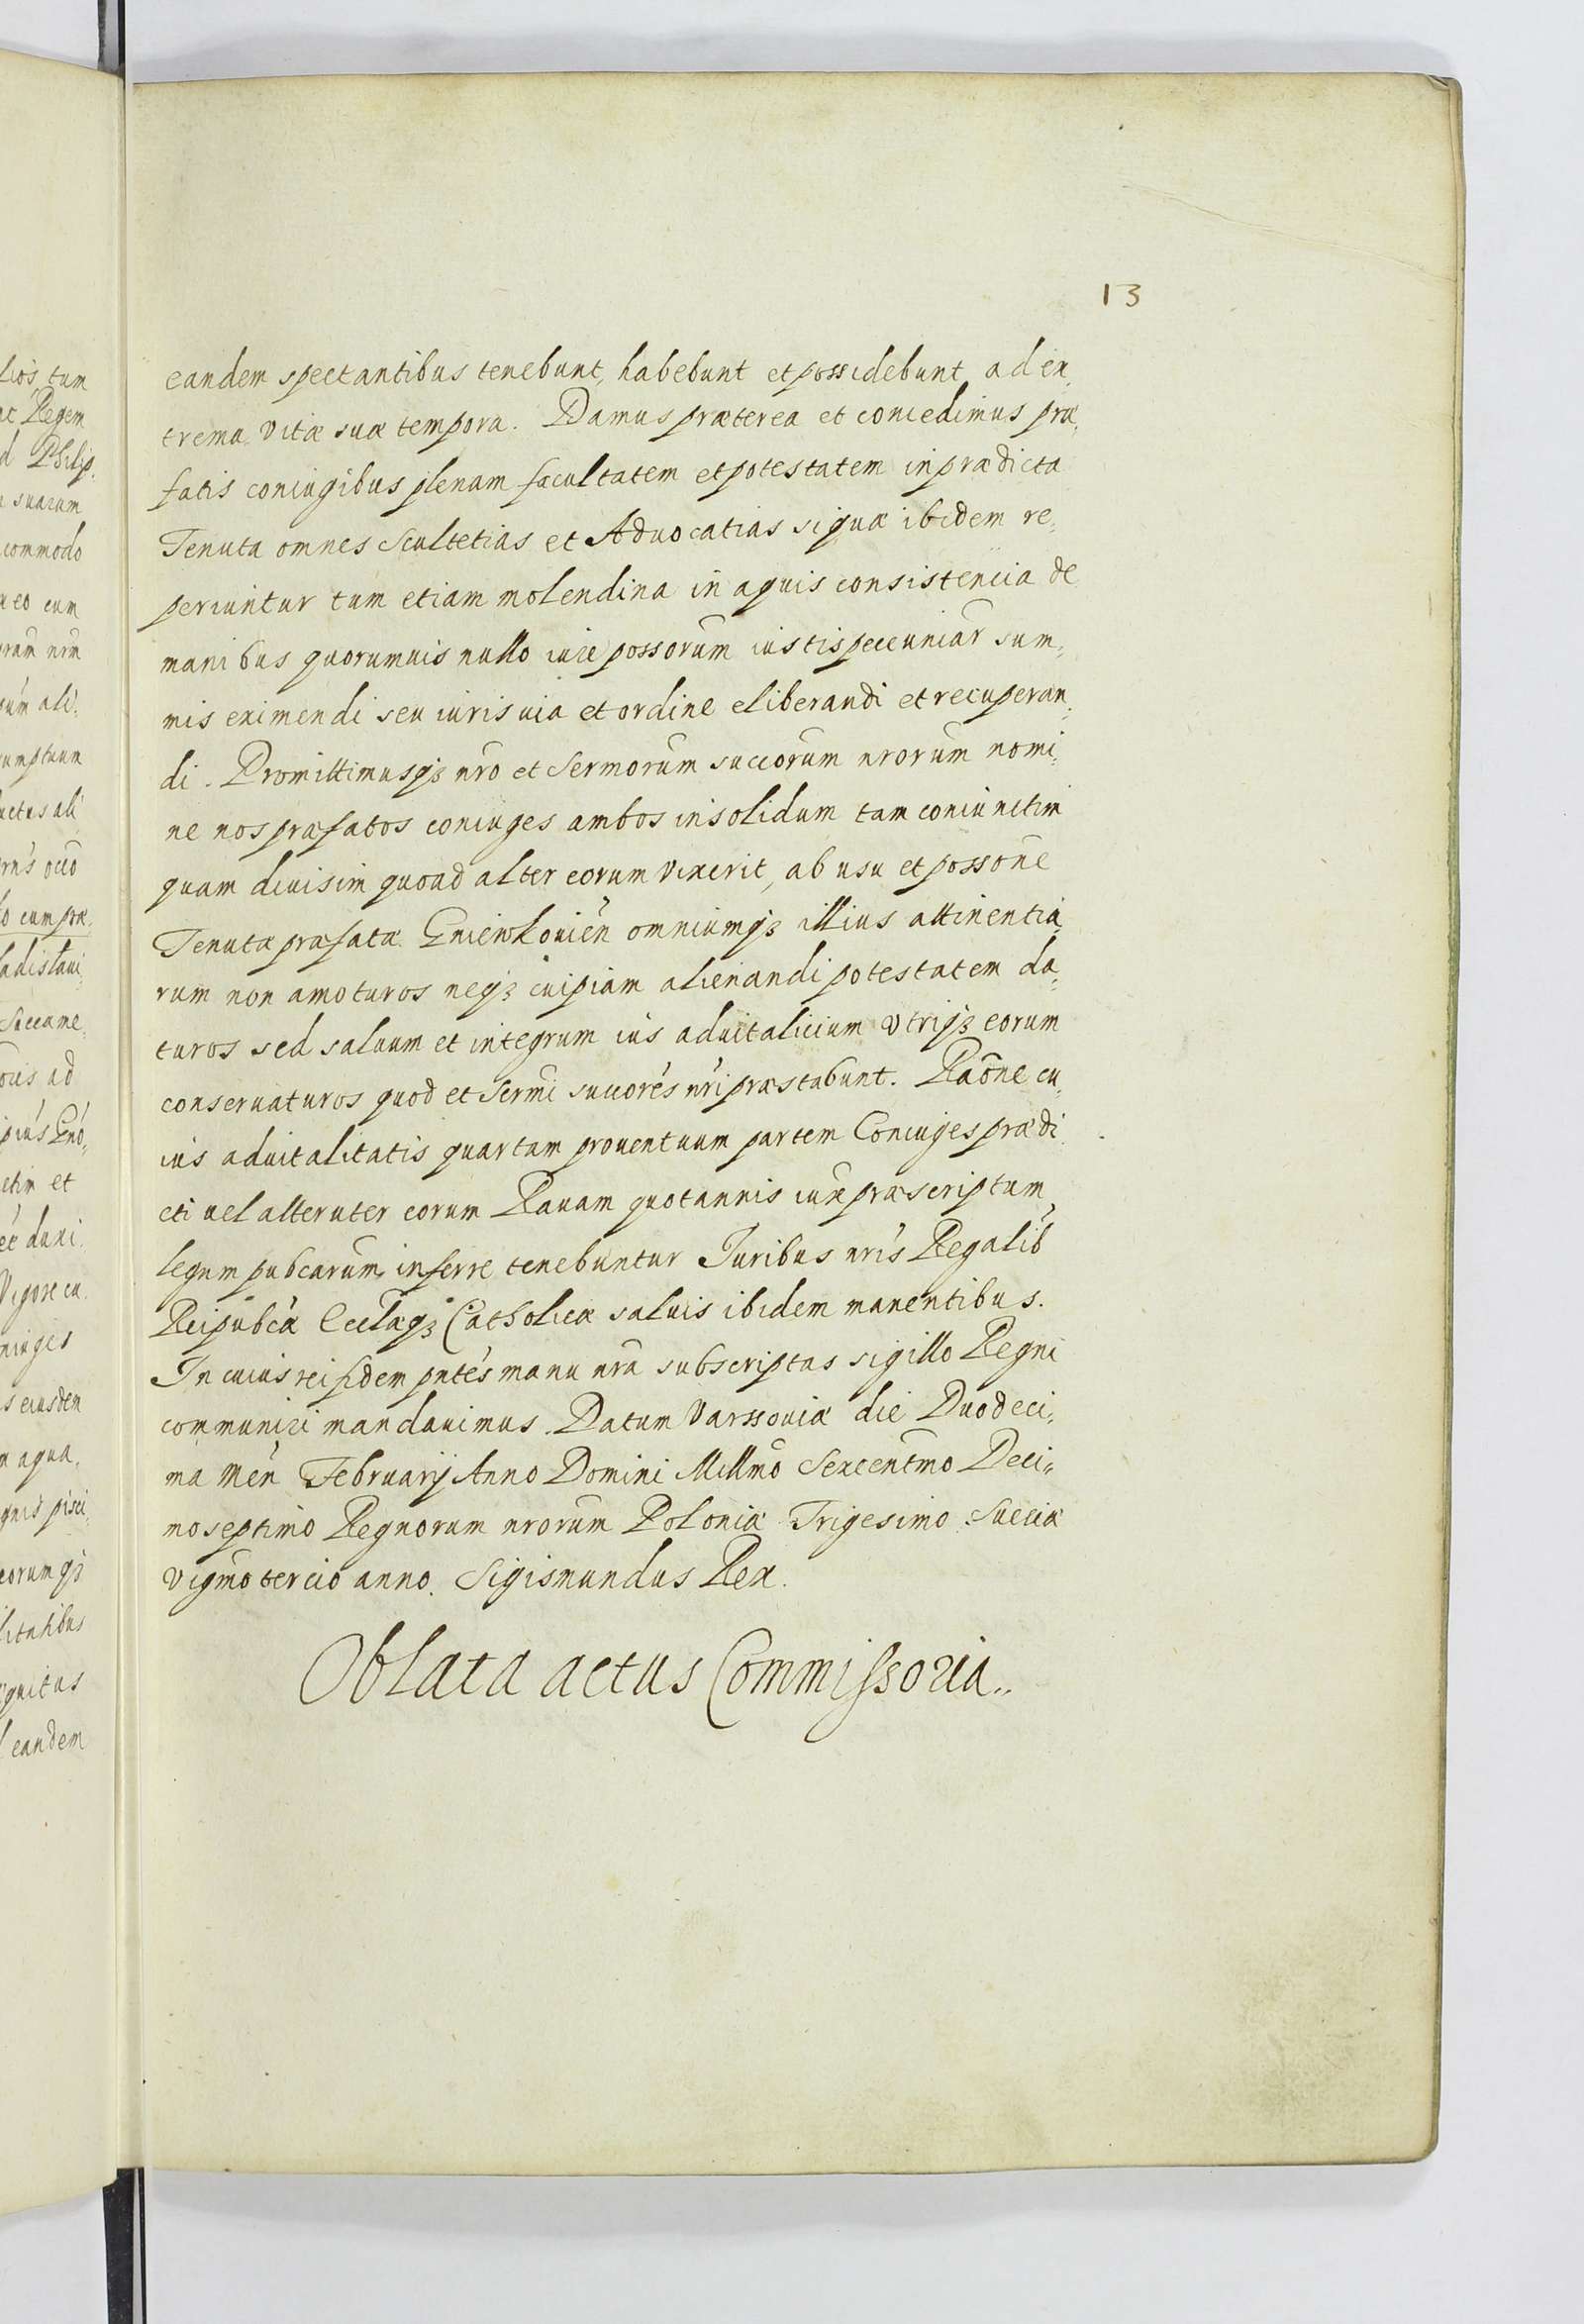 13
eandem spectantibus tenebunt, habebunt et possidebunt ad ex,
trema vitæ suæ tempora. Damus præterea et concedimus præ,
fatis coniugibus plenam facultatem et potestatem in prædicta
Tenuta omnes Scultetias et Aduocatias si quæ ibidem re,
periuntur tum etiam molendina in aquis consistencia de
manibus quorumuis nullo iure possorum iustis pecuniar sum,
mis eximendi seu iuris uia et ordine eliberandi et recuperan,
di. Promittimusqȝ nro et Sermorum succorum nrorum nomi,
ne nos præfatos coniuges ambos insolidum tam coniunctim
quam diuisim quoad alter eorum vixerit, ab usu et possone
Tenutæ præfatæ Gniewkouien omniumqȝ illius attinentia,
rum non amoturos neqȝ cuipiam alienandi potestatem da,
turos sed saluum et integrum ius aduitalicium vtriqȝ eorum
conseruaturos quod et Sermi succores nri præstabunt. Raone cu,
ius aduitalitatis quartam prouentuum partem Coniuges prædi
cti uel alteruter eorum Rauam quotannis iuxe præscriptum
legum pubcarum inferre tenebuntur Juribus nris Regalib
Reipubcæ Ecclæqȝ Catholicæ saluis ibidem manentibus.
In cuius rei fidem pntes manu nra subscriptas sigillo Regni
communiri mandauimus. Datum Varssouiæ die Duodeci,
ma Men Februarij Anno Domini Millmo Sexcentmo Deci,
moseptimo Regnorum nrorum Poloniæ Trigesimo Sueciæ
vigmo tercio anno. Sigismundus Rex.
Oblata actus Commissoria..